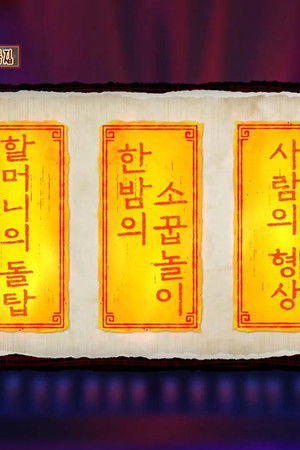 할머니의 돌탑
한밤의
소꿉놀이
사람의 형상